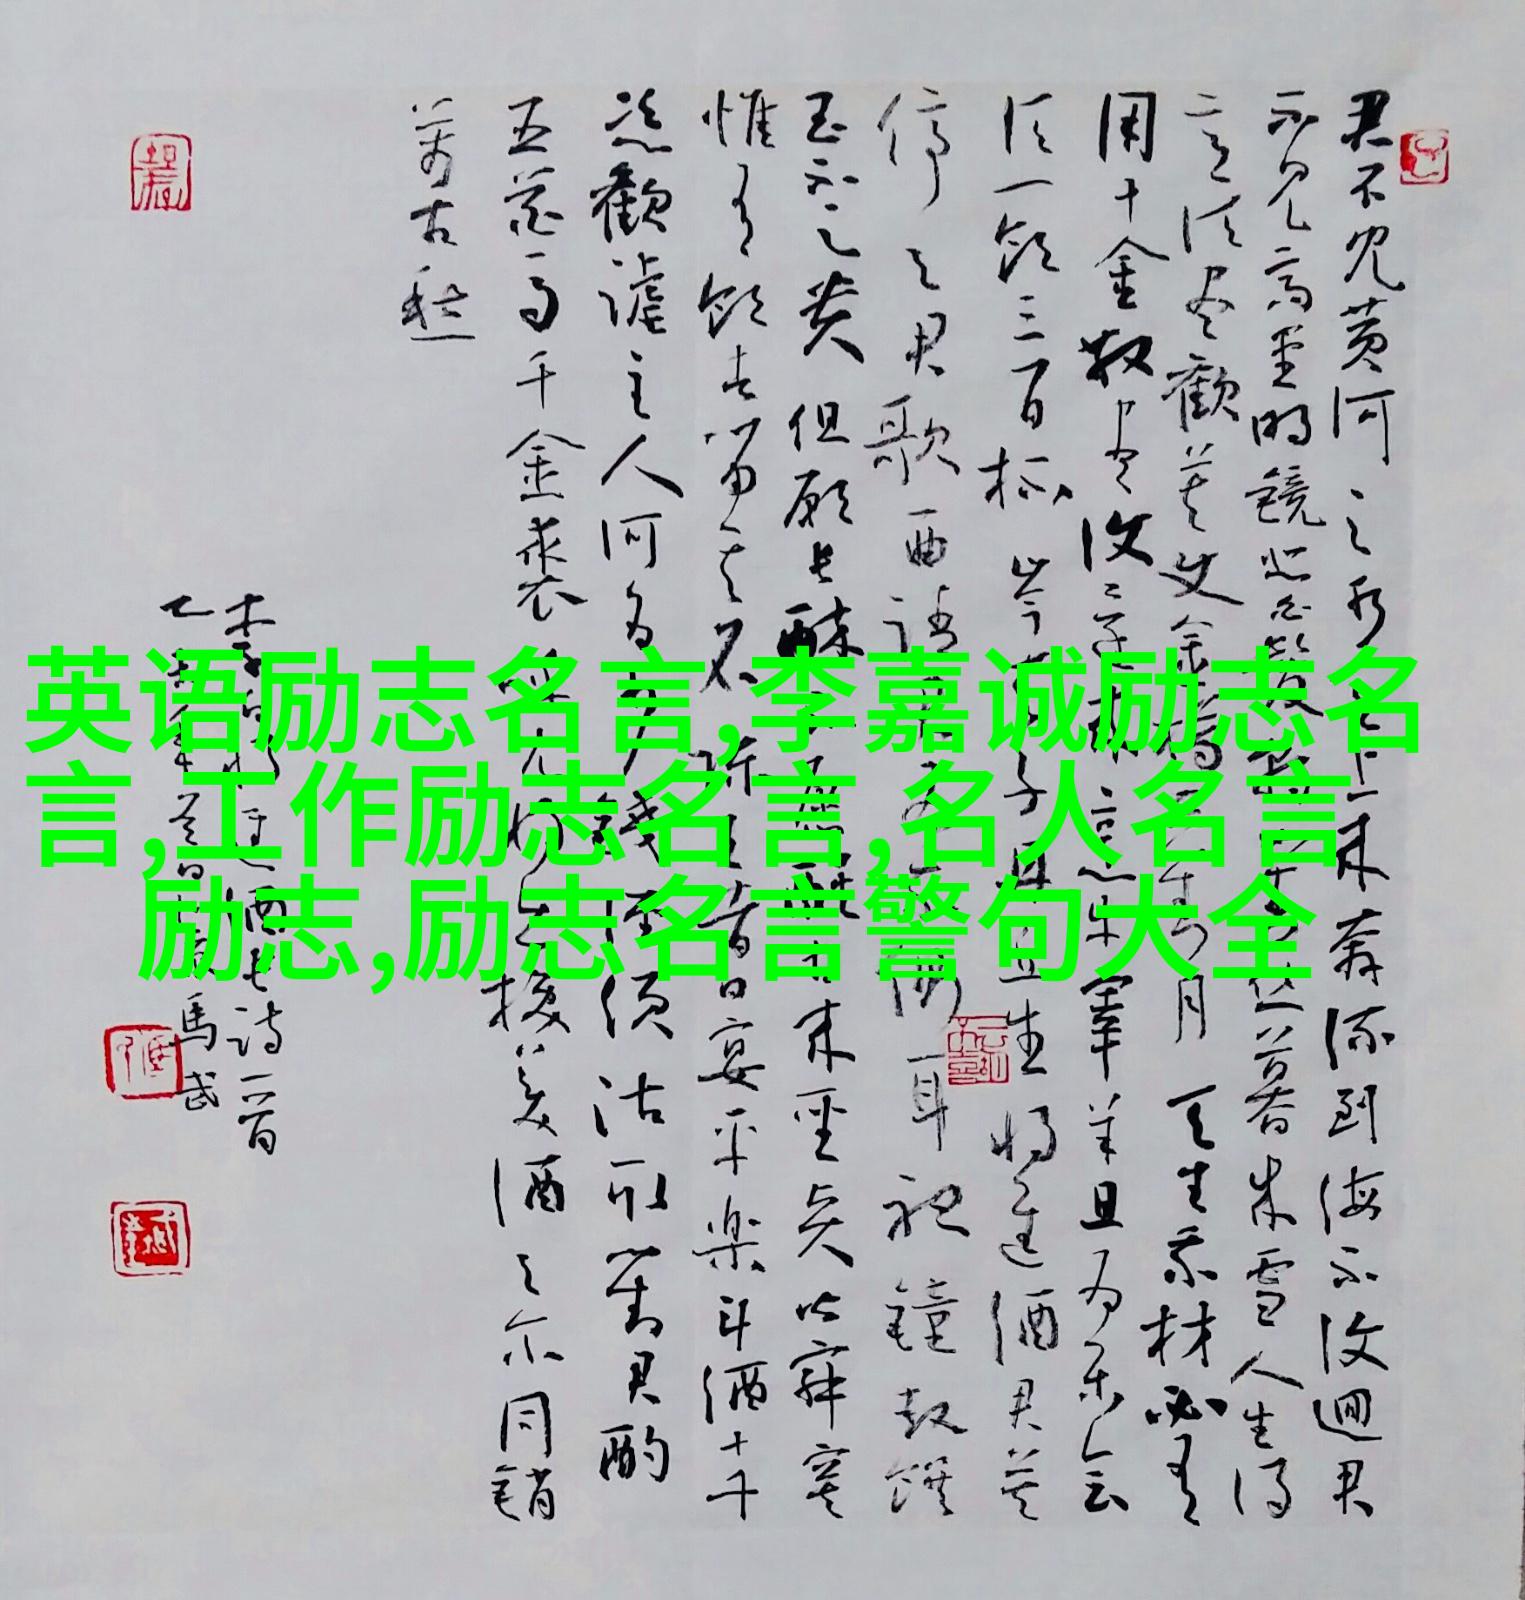 君不见黄河之水天上来奔流到海不復迴君
不见高堂明镜悲白髮朝如青丝暮成雪人生得
意须尽歡莫使金樽空对月天生我材必有
用千金散尽復还来烹牛宰羊且为乐会
须一飲三百杯岑夫子丹丘生将進酒君莫
停与君歌一曲請君为我倾耳聽鐘鼓饌
玉不足贵但願長醉不願醒古来聖贤皆寂寞
惟有飲者留其名陈王昔日宴平楽斗酒十千
恣歡謔主人何为言少錢径须沽取对君酌
五花马千金裘呼儿将出换美酒与尔同銷
萬古愁
李白将进酒長诗一首
乙未年
英语励志名言,李嘉诚励志名
言,工作励志名言,名人名言
励志,励志名言警句大全